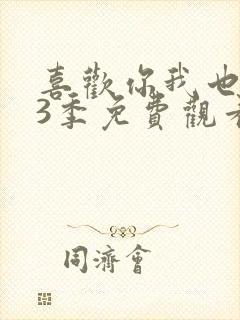 喜歡你我也
3季免費觀
同濟會